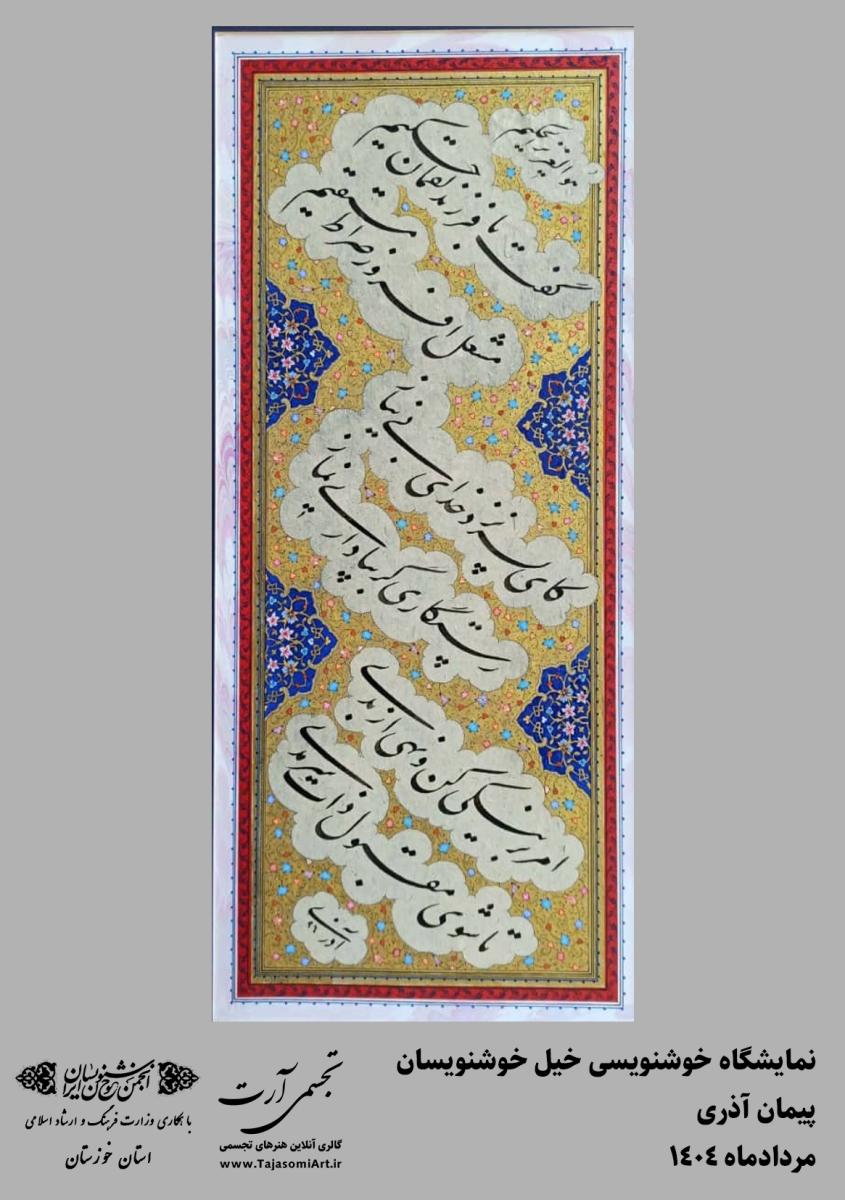 هو العزیز الحکیم
گفت با فرزند لقمان حکیم
مشعل افروز صراط مستقیم
کای پسر نزد خدای بی نیاز
رستگاری گر بپا داری نماز
امر بر نیکی کن و نهی از بدی
تا شوی مقبول ذات سرمدی
آذری ۹۶
نمایشگاه خوشنویسی خیل خوشنویسان
پیمان آذری
مردادماه ۱۴۰۴
تجسمی آرت
گالری آنلاین هنرهای تجسمی
www.TajasomiArt.ir
انجمن خوشنویسان ایران
با همکاری وزارت فرهنگ و ارشاد اسلامی
استان خوزستان